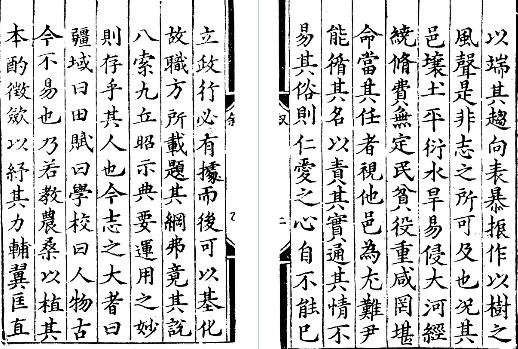 立政行必有據而後可以基化
故職方所載題其綱弗竟其說
八索九丘昭示典要運用之妙
則存乎其人也今志之大者曰
疆域曰田賦曰學校曰人物古
今不易也乃若教農桑以植其
本酌徵歛以紓其力輔翼匡直
以端其趨向表暴振作以樹之
風聲是非志之所可及也况其
邑壤土平衍水旱易侵大河經
繞脩費無定民貧役重咸罔堪
命當其任者視他邑為尤難尹
能循其名以責其實通其情不
易其俗則仁愛之心自不能巳